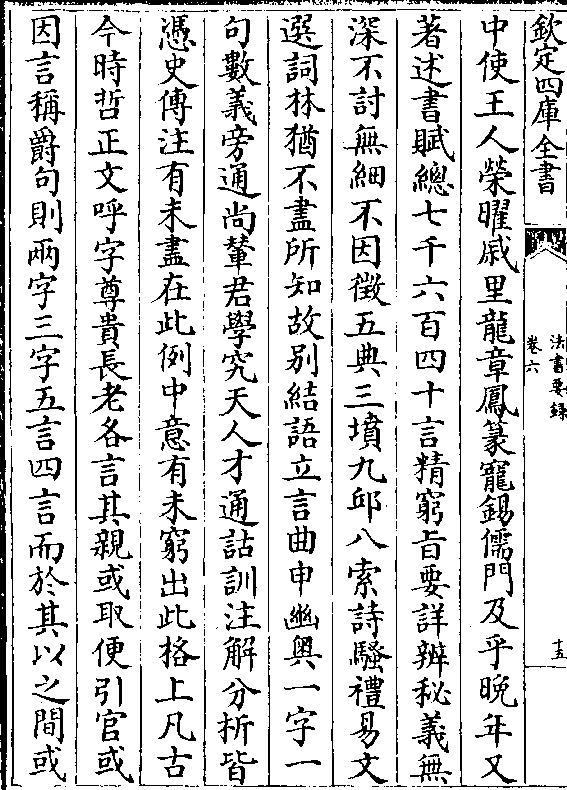 欽定四庫全書
法書要錄
卷六
十五
中使王人榮曜戚里龍章鳳篆寵錫儒門及乎晚年又
著述書賦總七千六百四十言精窮旨要詳辨秘義無
深不討無細不因徵五典三墳九邱八索詩騷禮易文
選詞林猶不盡所知故别結語立言曲申幽奧一字一
句數義旁通尚輦君學究天人才通詁訓注解分析皆
憑史傳注有未盡在此例中意有未窮出此格上凡古
今時哲正文呼字尊貴長老各言其親或取便引官或
因言稱爵句則兩字三字五言四言而於其以之間或